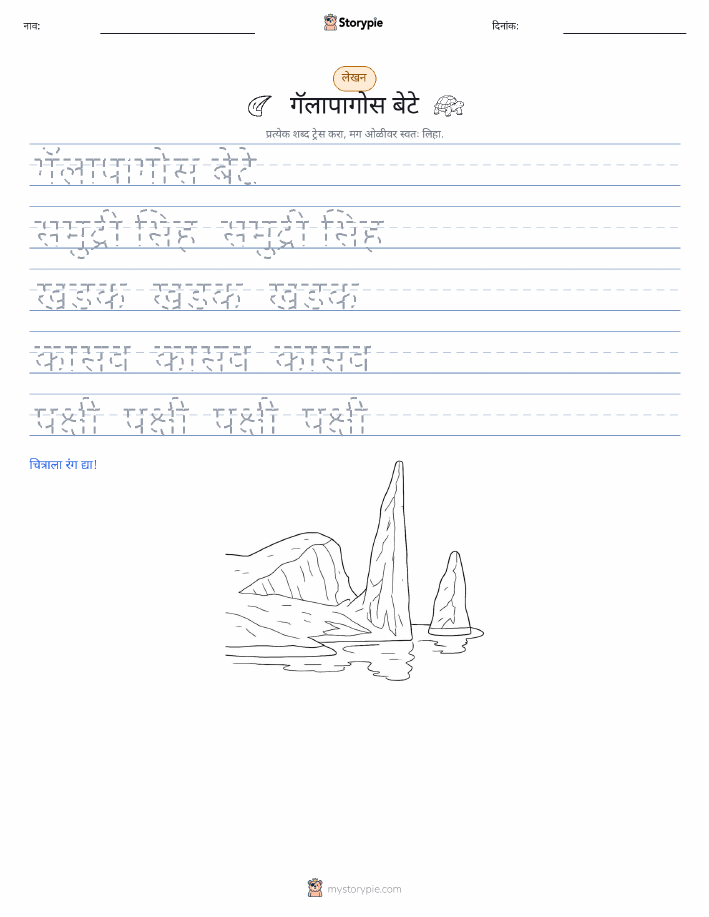 नाव:
Storypie
दिनांक:
लेखन
गॅलापागोस बेटे
प्रत्येक शब्द ट्रेस करा, मग ओळीवर स्वतः लिहा.
गॅलापागोस बेटे
समुद्री सिंह समुद्री सिंह
खडक खडक खडक
कासव कासव कासव
पक्षी पक्षी पक्षी पक्षी
चित्राला रंग द्या!
mystorypie.com